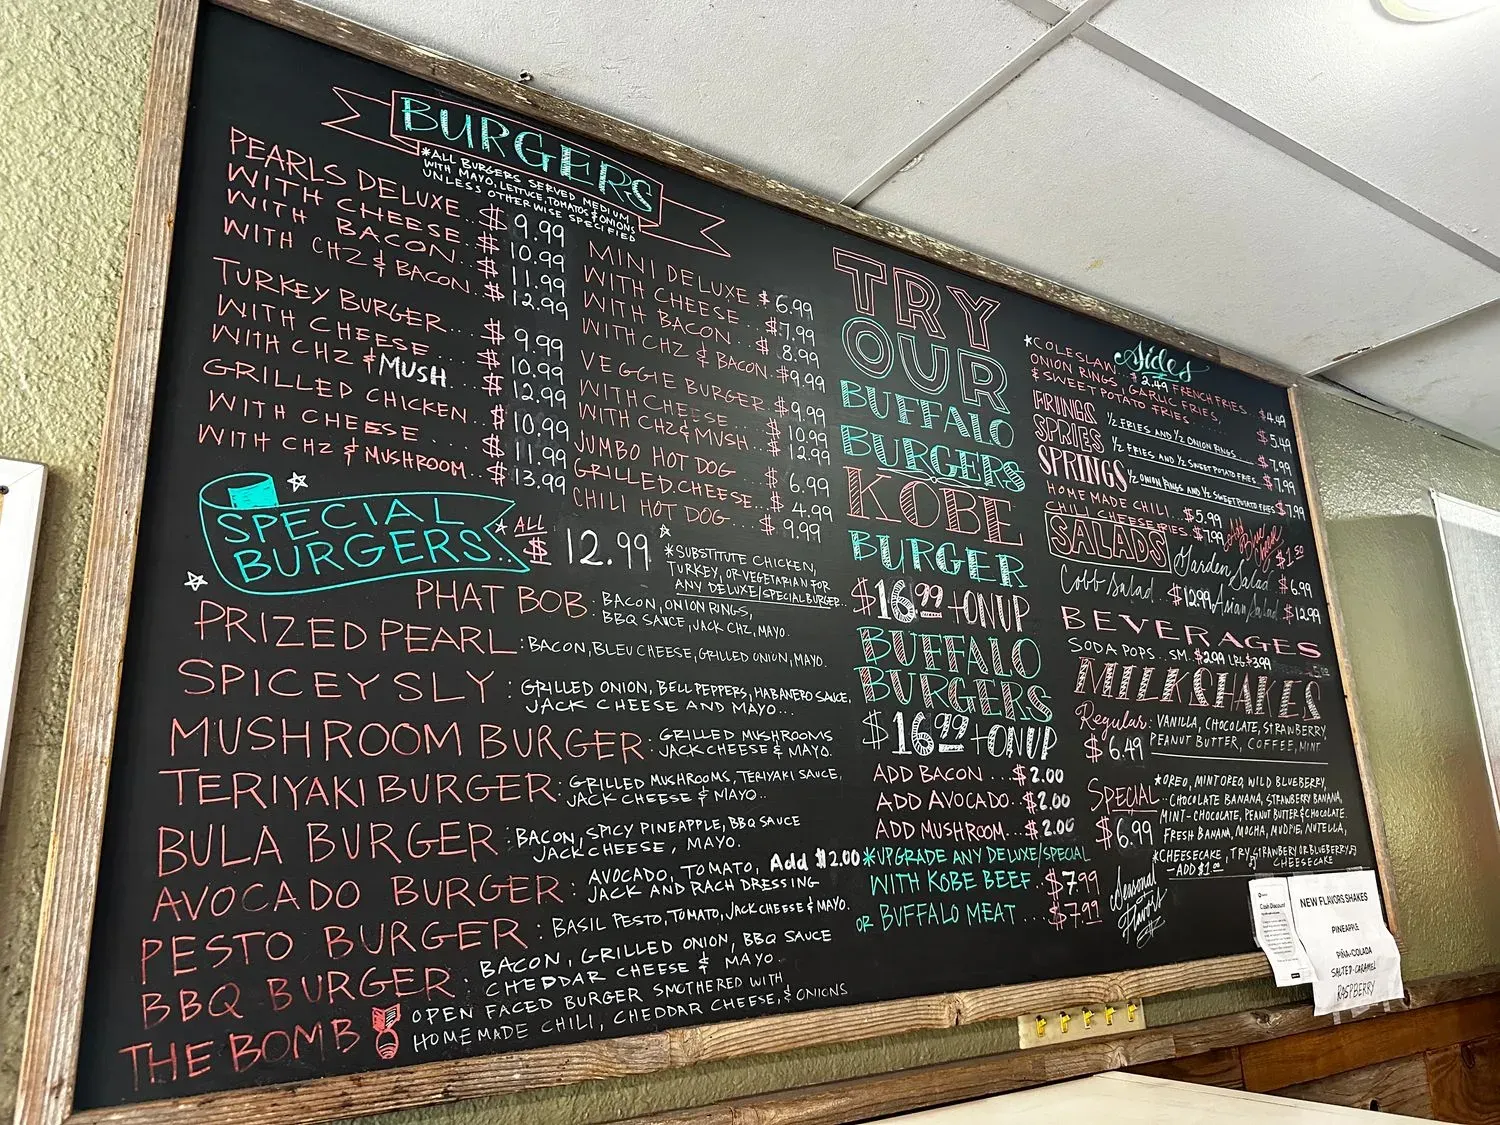 BURGERS
*ALL BURGERS SERVED MEDIUM
WITH MAYO, LETTUCE, TOMATOS & ONIONS
UNLESS OTHERWISE SPECIFIED
PEARLS DELUXE.. $ 9.99
WITH CHEESE.. $ 10.99
WITH BACON... $ 11.99
WITH CHZ & BACON.. $ 12.99
TURKEY BURGER... $ 9.99
WITH CHEESE.... $ 10.99
WITH CHZ & MUSH... $ 12.99
GRILLED CHICKEN.. $ 10.99
WITH CHEESE.... $ 11.99
WITH CHZ & MUSHROOM.. $ 13.99
MINI DELUXE. $ 6.99
WITH CHEESE.. $7.99
WITH BACON... $ 8.99
WITH CHZ & BACON. $9.99
VEGGIE BURGER. $9.99
WITH CHEESE.. $ 10.99
WITH CHZ & MUSH... $ 12.99
JUMBO HOT DOG.. $ 6.99
GRILLED CHEESE... $ 4.99
CHILI HOT DOG... $ 9.99
SPECIAL
BURGERS..
* ALL
$ 12.99
*SUBSTITUTE CHICKEN,
TURKEY, OR VEGETARIAN FOR
ANY DELUXE/SPECIAL BURGER..
PHAT BOB: BACON, ONION RINGS,
BBQ SAUCE, JACK CHZ, MAYO.
PRIZED PEARL: BACON, BLEU CHEESE, GRILLED ONION, MAYO.
SPICEY SLY: GRILLED ONION, BELL PEPPERS, HABANERO SAUCE,
JACK CHEESE AND MAYO...
MUSHROOM BURGER: GRILLED MUSHROOMS
JACK CHEESE & MAYO.
TERIYAKI BURGER: GRILLED MUSHROOMS, TERIYAKI SAUCE,
JACK CHEESE & MAYO..
BULA BURGER: BACON, SPICY PINEAPPLE, BBQ SAUCE
JACK CHEESE, MAYO.
AVOCADO BURGER: AVOCADO, TOMATO, Add $2.00
JACK AND RACH DRESSING
PESTO BURGER: BASIL PESTO, TOMATO, JACK CHEESE & MAYO.
BBQ BURGER: BACON, GRILLED ONION, BBQ SAUCE
CHEDDAR CHEESE & MAYO.
THE BOMB OPEN FACED BURGER SMOTHERED WITH
HOMEMADE CHILI, CHEDDAR CHEESE, & ONIONS
TRY
OUR
BUFFALO
BURGERS
KOBE
BURGER
$16.99 + ON UP
BUFFALO
BURGERS
$16.99 + ON UP
ADD BACON ... $2.00
ADD AVOCADO.. $2.00
ADD MUSHROOM... $2.00
*UPGRADE ANY DELUXE/SPECIAL
WITH KOBE BEEF.. $7.99
OR BUFFALO MEAT ... $7.99
Sides
*COLESLAW.. $2.49 FRENCH FRIES.. $4.49
ONION RINGS, GARLIC FRIES,
& SWEET POTATO FRIES. $5.49
FRINGS ½ FRIES AND ½ ONION RINGS $7.99
SPRIES ½ FRIES AND ½ SWEET POTATO FRIES.. $7.99
SPRINGS ½ ONION RINGS AND ½ SWEET POTATO FRIES $7.99
HOME MADE CHILI.. $5.99
CHILI CHEESE FRIES $7.99
$1.50
SALADS
Garden Salad.. $6.99
Cobb Salad.. $12.99 Asian Salad.. $12.99
BEVERAGES
SODA POPS.. SM. $2.99 LRG $3.99
MILKSHAKES
Regular: VANILLA, CHOCOLATE, STRAWBERRY,
$6.49 PEANUT BUTTER, COFFEE, MINT
SPECIAL *OREO, MINT OREO, WILD BLUEBERRY,
$6.99 CHOCOLATE BANANA, STRAWBERRY BANANA,
MINT-CHOCOLATE, PEANUT BUTTER & CHOCOLATE.
FRESH BANANA, MOCHA, MUDPIE, NUTELLA,
*CHEESECAKE, TRY STRAWBERRY OR BLUEBERRY
CHEESECAKE
-ADD $1.00
Seasonal
Flavors
Cash Discount
NEW FLAVORS SHAKES
PINEAPPLE
PIÑA-COLADA
SALTED-CARAMEL
RASPBERRY